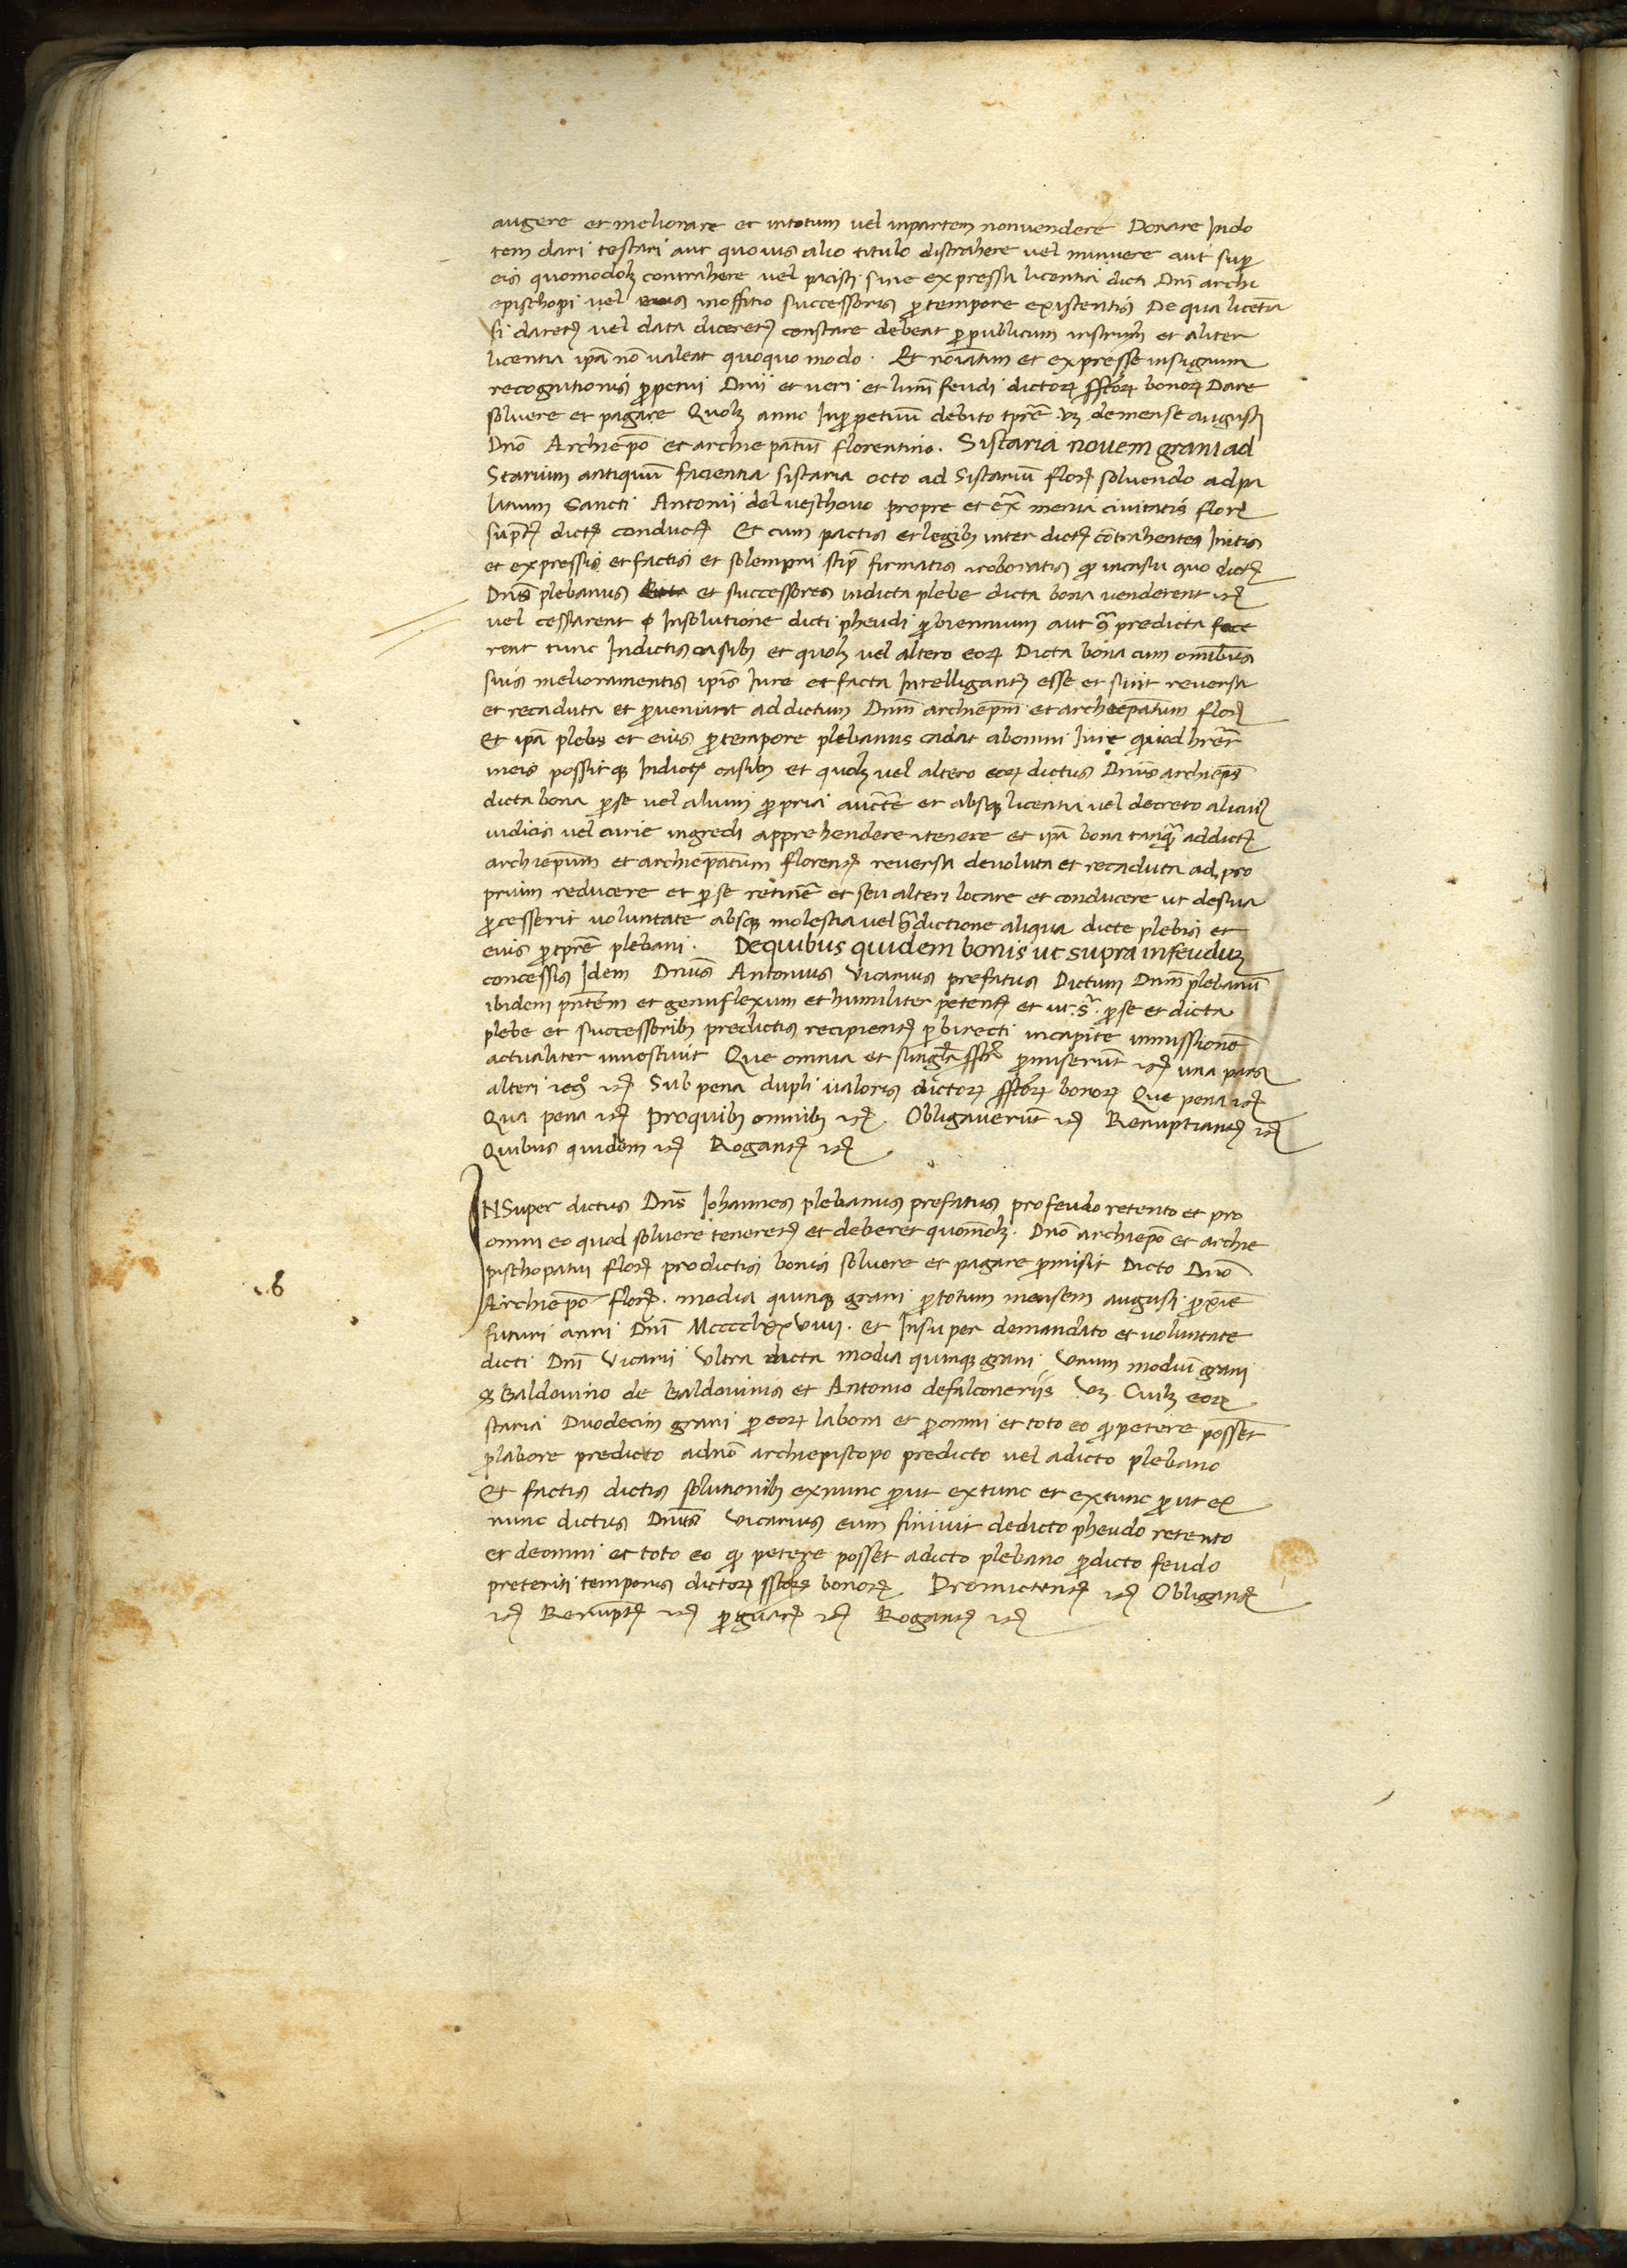 augere et meliorare et intotum vel inpartem nonvendere Donare Indo
tem dari testari aut quovis alio titulo distrahere vel minuere aut sup̱
eis quomodolꝫ contrahere vel pacisci sine expressa licentia dicti Dnī archi
epischopi vel eius inoffitio successoris ꝑtempore existentis De qua licētia
si daretꝭ vel data diceretꝭ constare debeat ꝑpublicum instrum̄ et aliter
licentia ip̄a nō valeat quoquo modo . Et noīatim et expresse insignum
recognitionis ꝑpetui Dnii et veri et feudi dictoꝝ sstoꝝ bonoꝝ Dare
solvere et pagare Quolꝫ anno Inꝑpetuū debito tp̄re vꝫ demense augusti
Dnō Archiep̄o et archiep̄atui florentino. Sistaria novem grani ad
Starium antiquū facientia sistaria octo ad Sistariū florꝭ solvendo adpa
latium Sancti Antonii del veschovo propre et ext̄ menia civitatis florꝭ
sumpt̄ꝭ dictꝭ conductꝭ Et cum pactis et legibꝫ inter dictꝭ cōtrahentes Initis
et expressis et factis et solempni stip̄ firmatis ⁊roboratis ꝙ incasu quo dictꝭ
Dnūs plebanus et successores indicta plebe dicta bona venderent ⁊cꝭ
vel cessarent Insolutione dicti pheudi ꝑbiennium aut ꝯ̄ predicta fece
rent tunc Indictis casibꝫ et quolꝫ vel altero eoꝝ Dicta bona cum omībus
suis melioramentis ip̄is Iure et facta Intelligantꝭ esse et sint reversa
et recaduta et ꝑveniant ad dictum Dnm̄ archiep̄m et archiep̄atum florꝭ
Et ip̄a plebs et eius ꝑtempore plebanus cadat abomni Iure quod hr̄et
ineis possitqꝫ Indictꝭ casibꝫ et quolꝫ vel altero eoꝝ dictus Dnūs archiep̄s
dicta bona ꝑse vel alium ꝓpria auctē et absqꝫ licentia vel decreto alicuiꝰ
iudicis vel curie ingredi apprehendere ⁊tenere et ip̄a bona tanqꝫ addictꝭ
archiep̄um et archiep̄atum florenꝭ reversa devoluta et recaduta ad pro
prium reducere et ꝑse retinē et seu alteri locare et conducere ut desua
ꝓcesserit voluntate absqꝫ molestia vel ꝯ̄dictione aliqua dicte plebis et
eius ꝑtp̄re plebani . Dequibus quidem bonis ut supra infeudum
concessis Idem Dnūs Antonius vicarius prefatus Dictum Dnm̄ plebanū
ibidem pn̄tem et genuflexum et humiliter petentꝭ et ut sͣ . ꝑse et dicta
plebe et successoribꝫ predictis recipientꝭ ꝑ birecti incapite inmissionē
actualiter investivit Que omnia et singl̄a sstā ꝓmiserūt ⁊cꝭ una pars
alteri ⁊cꝭ Sub pena dupli valoris dictoꝝ sstoꝝ bonoꝝ Que pena ⁊cꝭ
Qua pena ⁊cꝭ proquibꝫ omnibꝫ ⁊cꝭ Obligaverūt ⁊cꝭ Renuptiantꝭ ⁊cꝭ
Quibus quidem ⁊cꝭ Rogantꝭ ⁊cꝭ
INSuper dictus Dnūs Iohannes plebanus prefatus profeudo retento et pro
omni eo quod solvere teneretꝭ et deberet quomōlꝫ . Dnō archiepō et archie
pischopatui florꝭ prodictis bonis solvere et pagare ꝓmisit Dicto Dnō
.6
Archiepō florꝭ . modia quinqꝫ grani ꝑtotum mensem augusti ꝓxīe
futuri anni Dnī Mcccclxxviiii . et Insuper demandato et voluntate
dicti Dnī vicarii ultra dicta modia quinqꝫ grani unum modiū grani
Baldovino de Baldovinis et Antonio defalconeriis vꝫ Cuilꝫ eoꝝ
staria Duodecim grani ꝑ eoꝝ labora et ꝑomni et toto eo ꝙ petere possēt
ꝓlabore predicto adnō archiepiscopo predicto vel adicto plebano
Et factis dictis solutionibꝫ exnunc ꝓut extunc et extunc ꝓut ex
nunc dictus Dnūs vicarius eum finivit dedicto pheudo retento
et deomni et toto eo ꝙ petere posset adicto plebano ꝓdicto feudo
preteriti temporis dictoꝝ sstoꝝ bonoꝝ Promictentꝭ ⁊cꝭ Obligantꝭ
⁊cꝭ Renuptꝭ ⁊cꝭ ꝑ guarꝭ ⁊cꝭ Rogantꝭ ⁊cꝭ